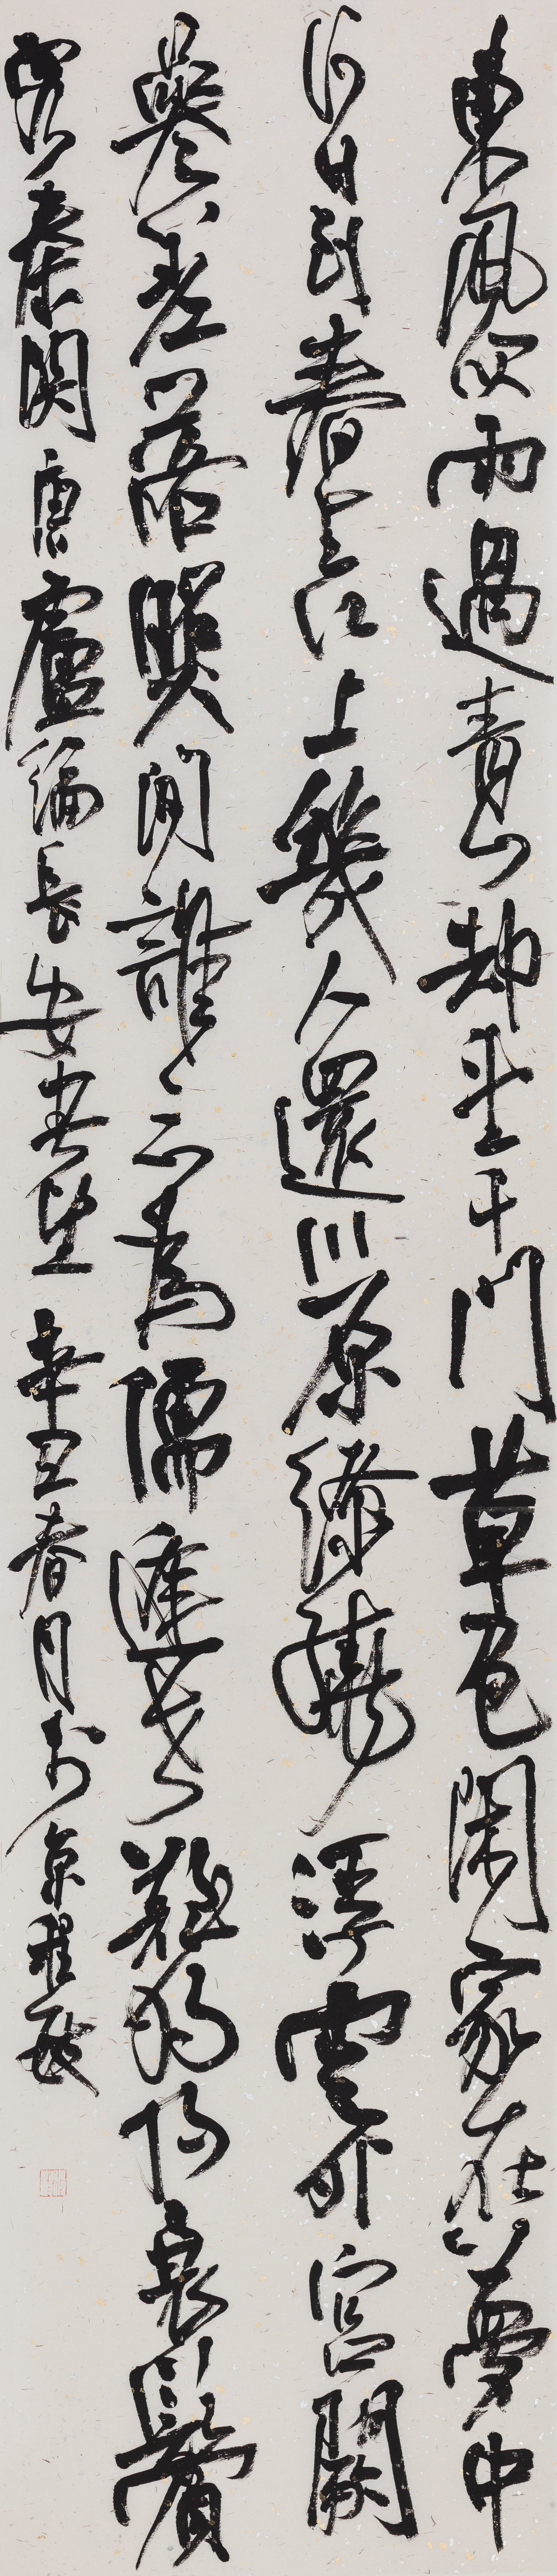 東風吹雨過青山却望千門草色閑家在夢中
何日到春来江上幾人還川原繚繞浮雲外宮闕
參差落照間誰念為儒逢世難獨将衰鬢
客秦關唐盧綸長安春望辛丑春月於京